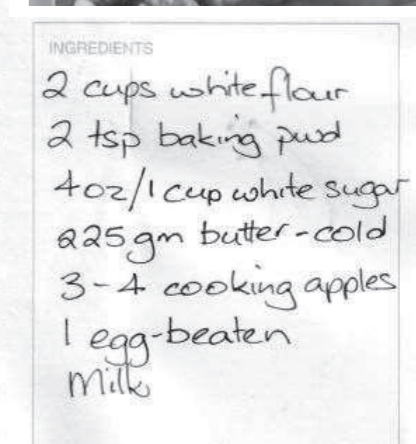 INGREDIENTS
2 cups white flour
2 tsp baking pwd
4oz/1 cup white sugar
225gm butter-cold
3-4 cooking apples
1 egg-beaten
Milk